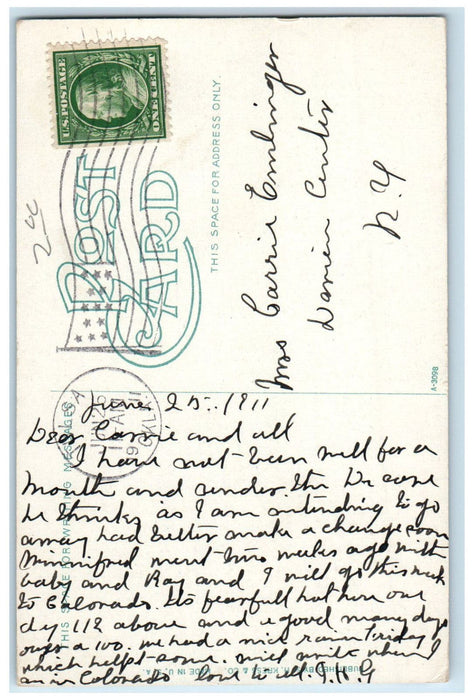 U.S. POSTAGE
ONE CENT
2 00
POST
CARD
THIS SPACE FOR ADDRESS ONLY.
Mrs Carrie Emlinger
Darien Center
N.Y
A-3098
THIS SPACE FOR WRITING MESSAGES
JUN 26
AM
1911
OKLA
June 25. 1911
Dear Carrie and all
I have not been well for a
month and under the Dr care
he thinks as I am intending to go
away had better make a change soon
Winnifred went two weeks ago with
baby and Ray and I will go this week
to Colorado. Its fearful hot here one
day 112 above and a good many days
over a 100. we had a nice rain Friday
which helps some. will write when I
am in Colorado Love to all. J.H.G
PUBLISHED BY S.H. KRESS & CO.
MADE IN U.S.A.